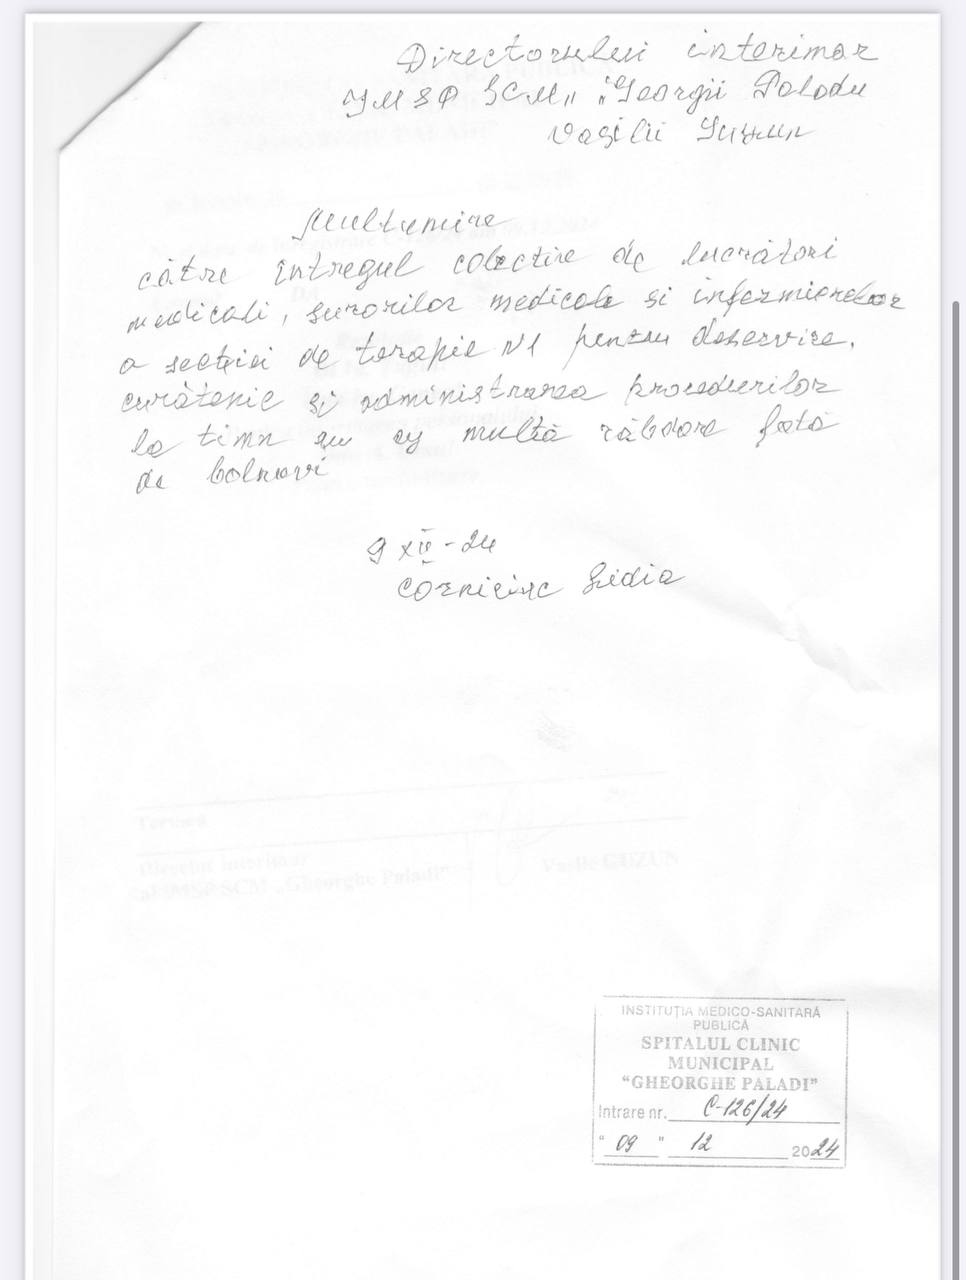 Directorului interimar
IMSP SCM „Georgii Polodu
Vasilii Guzun
Multumire
către întregul colective de lucrători
medicali, surorilor medicale si infermierelor
a secției de terapie N1 pentru deservire,
curătenie și administrarea procedurilor
la timp cu multă răbdare fată
de bolnavi
9 XII-24
Corniciuc Lidia
Termen
Director interimar
al IMSP SCM „Gheorghe Paladi”
Vasile GUZUN
INSTITUȚIA MEDICO-SANITARĂ
PUBLICĂ
SPITALUL CLINIC
MUNICIPAL
“GHEORGHE PALADI”
Intrare nr. C-126/24
“ 09 ” 12 2024